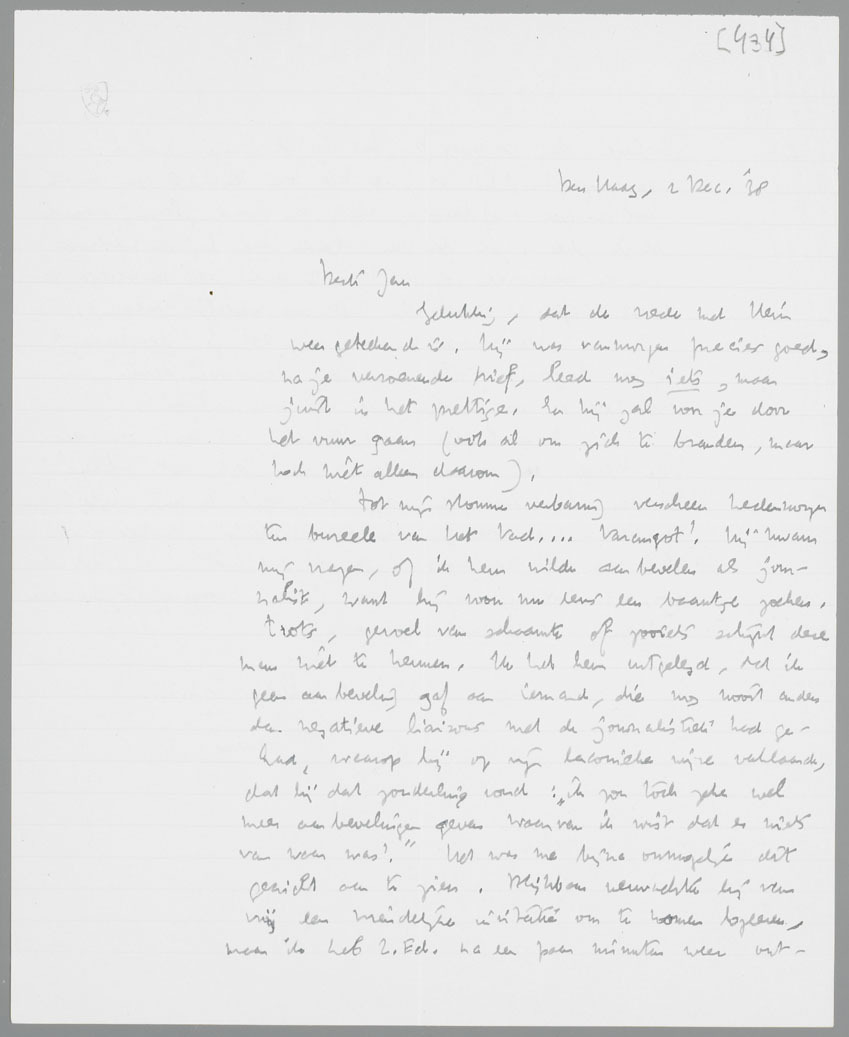 [434]
Den Haag, 2 Dec. '38
Beste Jan
Gelukkig, dat de vrede met Hein
weer geteekend is. Hij was vanmorgen precies goed,
na je verzoenende brief, leed nog iets, maar
juist in het prettige. En hij zal voor je door
het vuur gaan (ook al om zich te branden, maar
toch niet alleen daarom).
Tot mijn stomme verbazing verscheen hedenmorgen
ten bureele van het Vad.... Barangot! Hij kwam
mij vragen, of ik hem wilde aanbevelen als jour-
nalist, want hij wou nu eens een baantje zoeken.
Trots, gevoel van schaamte of zooiets schijnt deze
man niet te kennen. Ik heb hem uitgelegd, dat ik
geen aanbeveling gaf aan iemand, die nog nooit anders
dan negatieve liaisons met de journalistiek had ge-
had, waarop hij op zijn laconieke wijze verklaarde,
dat hij dat zonderling vond: „ik zou toch zeker wel
meer aanbevelingen geven waarvan ik wist dat er niets
van waar was!" Het was me bijna onmogelijk dit
gezicht aan te zien. Blijkbaar verwachtte hij van
mij een vriendelijke invitatie om te komen logeeren,
maar ik heb Z.Ed. na een paar minuten weer uit-